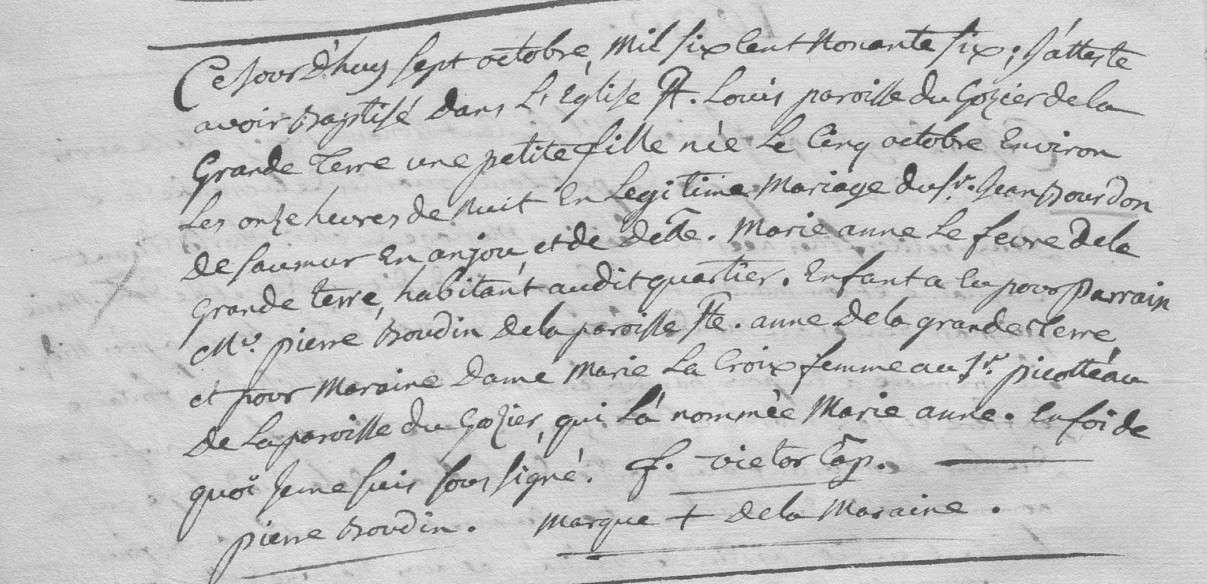 Cejourd'huy sept octobre, Mil six Cent Nonante six; J'atteste
avoir Baptisé dans L'Eglise St. Louis paroisse du Gozier de la
Grande Terre une petite fille née Le Cinq octobre Environ
Les onze heures de Nuit En Legitime Mariage du Sr. Jean Bourdon
De Saumur En anjou, et de dette. Marie anne Le fevre dela
grande terre, habitant audit quartier. Enfant a Eu pour Parrain
Mr. pierre Boudin dela paroisse Ste. anne dela grande terre
et pour Maraine Dame Marie La Croix femme au Sr. picotteau
de La paroisse du Gozier, qui L'a nommée Marie anne. En foi de
quoi Je me suis sous signé. f. victor Cap.
pierre Boudin. Marque + dela Maraine.